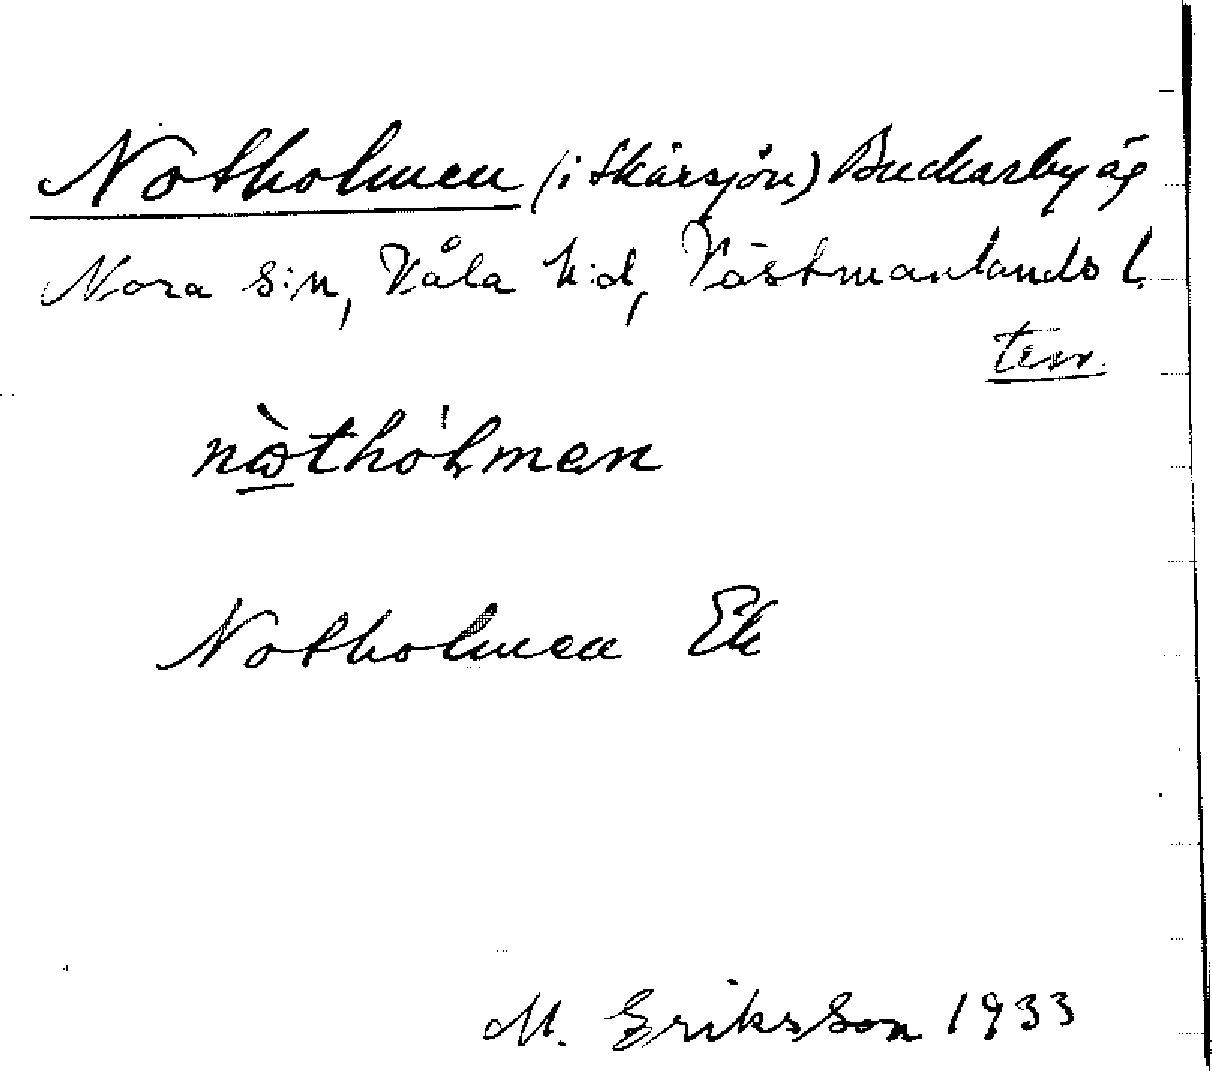 Notholmen (i Skärsjön) Buckarby äg
Nora s:n, Våla h:d, Västmanlands l.
terr.
nòthòlmen
Notholmen Ek
M. Eriksson 1933